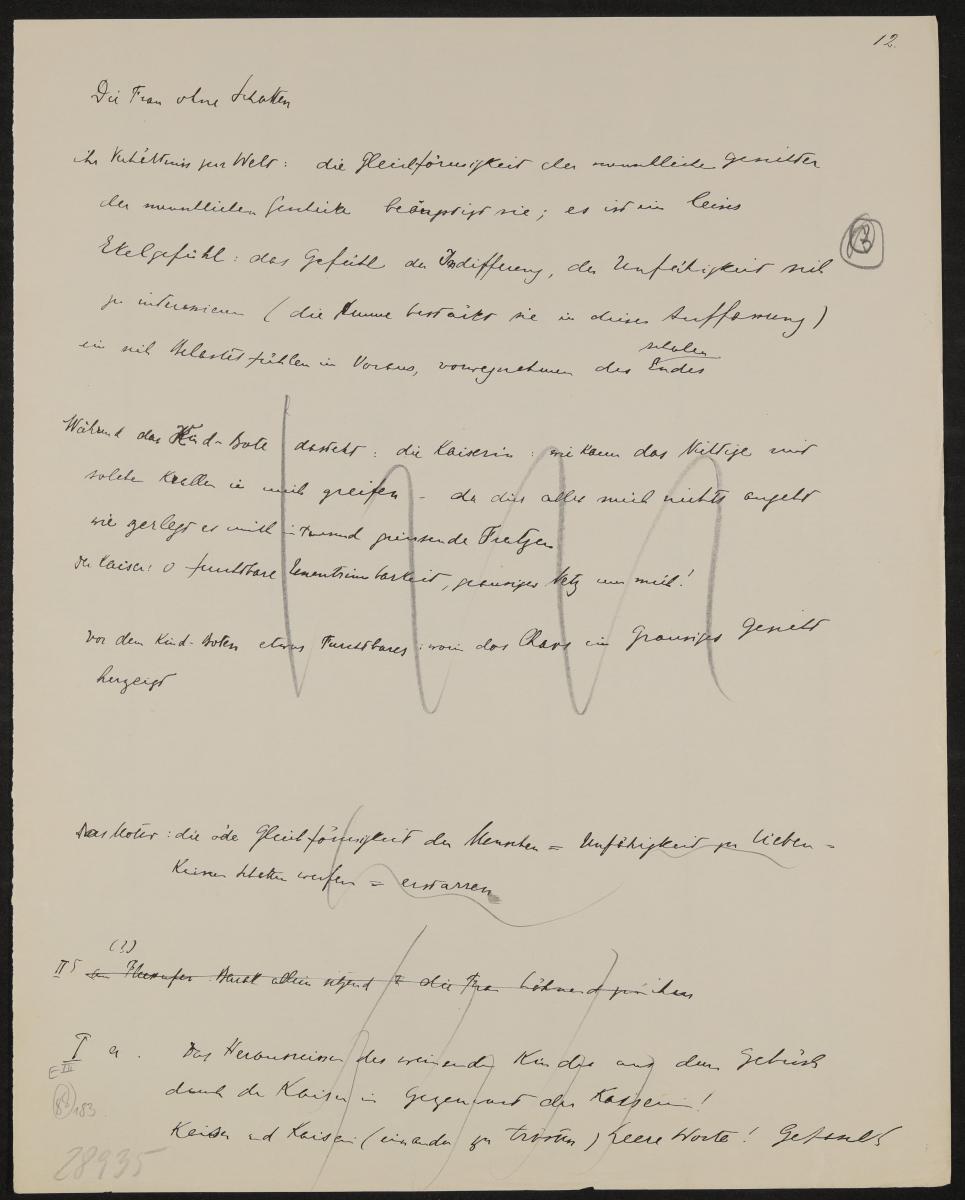 12.
Die Frau ohne Schatten
ihr Verhältnis zur Welt: die Gleichförmigkeit der menschlichen Gesichter
der menschlichen Geschicke beängstigt sie; es ist ein leises
Ekelgefühl: das Gefühl der Indifferenz, der Unfähigkeit sich
zu interessieren (die Amme bestärkt sie in dieser Auffassung)
ein sich Belastet fühlen im Voraus, vorwegnehmen des schalen Endes
B
Während das Kind-Bote dasteht: die Kaiserin: wie kann das Nichtige mit
solchen Krallen in mich greifen – da dies alles mich nichts angeht
wie zerlegt es mich in tausend grinsende Fratzen
Der Kaiser: o furchtbare Unentrinnbarkeit, grausiges Netz um mich!
Vor dem Kind-Boten etwas Furchtbares: worin das Chaos ein Grausiges Gesicht
herzeigt
Das Motiv: die öde Gleichförmigkeit der Menschen = Unfähigkeit zu Lieben =
Keinen Schatten werfen = erstarren
(?)
II 5 am Flussufer Barak allein sitzend die Frau höhnend zu ihm
I a. Das Herausreissen des weinenden Kindes aus dem Gebüsch
E III
durch den Kaiser in Gegenwart der Kaiserin!
88 183
Kaiser und Kaiserin (einander zu trösten) Leere Worte!
28935